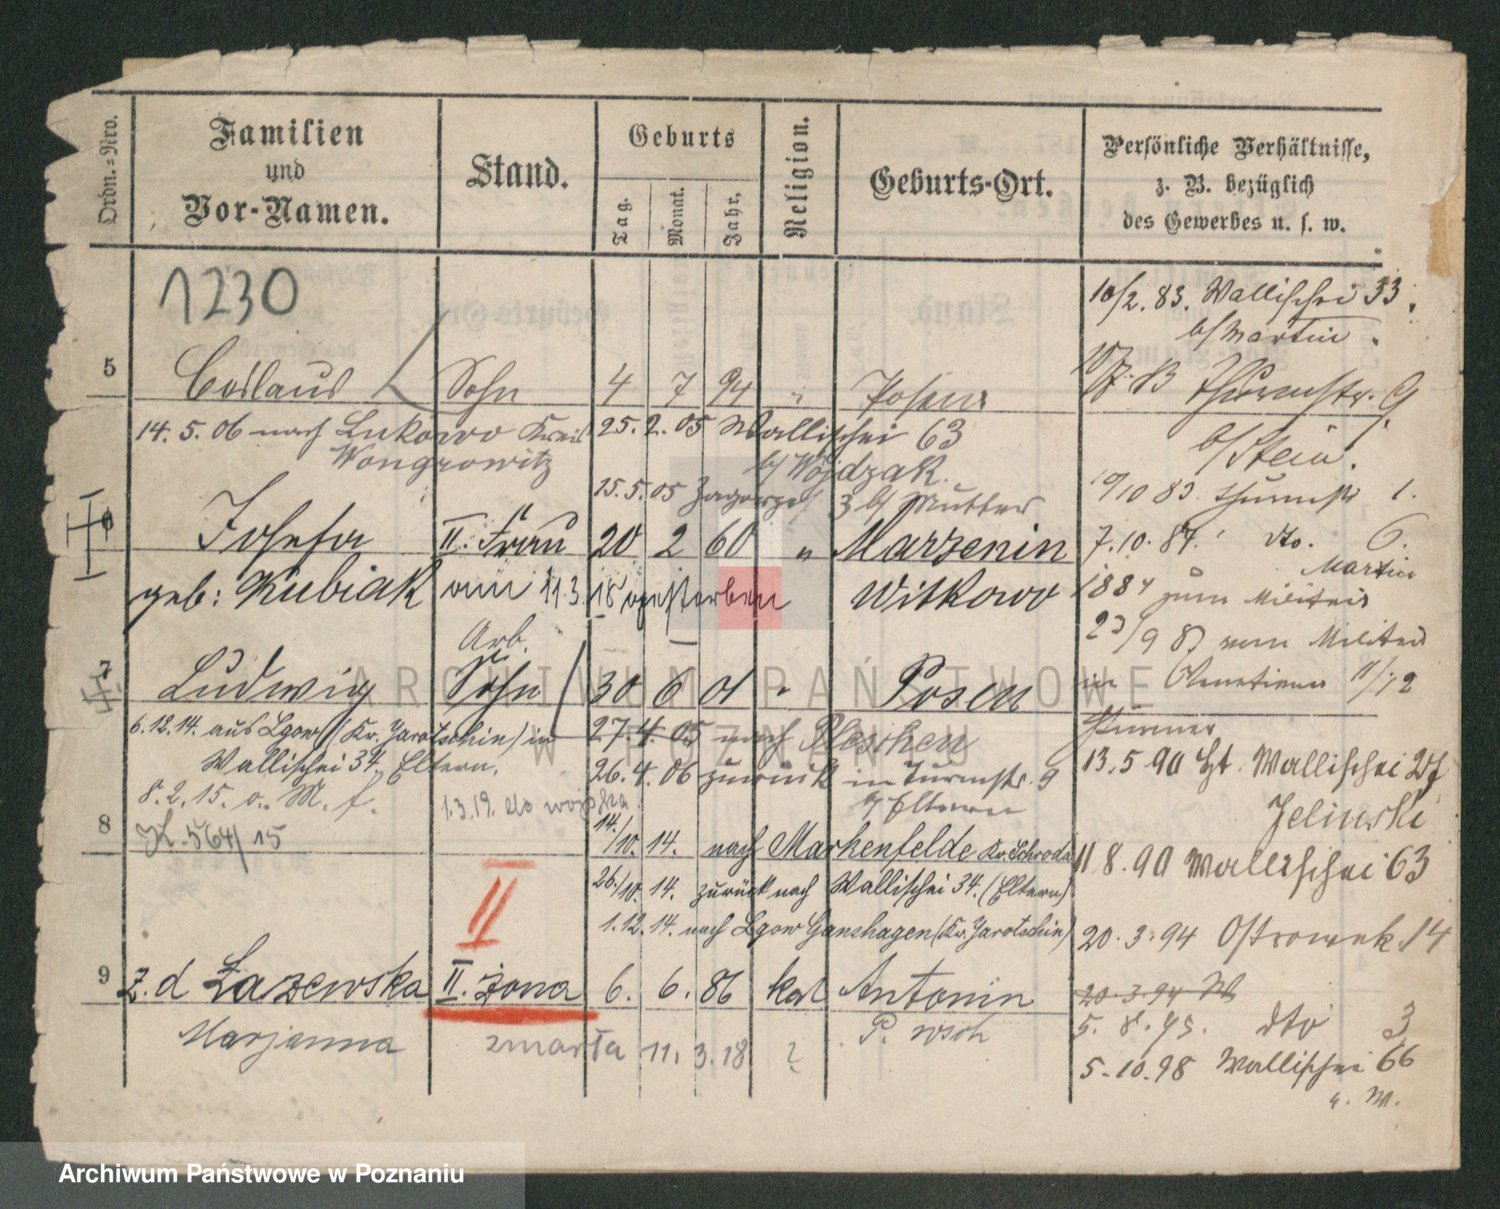 Ordn.=Nro.
Familien und Vor-Namen.
Stand.
Geburts
Tag.
Monat.
Jahr,
Religion.
Geburts-Ort.
Persönliche Verhältnisse, z. B. bezüglich des Gewerbes u. s. w.
1230
10/2. 83. Wallischei 33.
b/Martin.
5 Sohn 4 7 94 " Posen
83 Thurmstr. 9
b/Stein.
14. 5. 06 nach Lukowo Kreis
Wongrowitz
25. 2. 05 Wallischei 63
b/ Wojdzak.
15. 5. 05 3 b/ Mutter
10 83. Thurmstr 1.
6 Josefa II. Frau 20 2 60 " Marzenin
geb: Kubiak am 11.3. 18 gestorben Witkowo
7. 10. 84. dto. 6.
Martin
1884 zum Militair
23/9 87 vom Militair
Arb.
7 Ludwig Sohn 30 6 01 " Posen
6. 12. 14. aus Lgow (Kr. Jarotschin) in
Wallischei 34, Eltern.
8. 2. 15. o. M. f.
K. 564/15
1.3.19. do wojska
27. 4. 05 nach Pleschen
26. 4. 06 zurück in Turmstr. 9
b/ Eltern
13. 5 90 Wallischei 27
Jelinski
8
14./10. 14. nach Markenfelde Kr. Schroda
26./10. 14. zurück nach Wallischei 34. (Eltern)
1. 12. 14. nach Lgow Ganshagen (Kr. Jarotschin)
11 8. 90 Wallischei 63
II
20. 3. 94 Ostrowek 14
9 z. d Łazewska II. żona 6. 6. 86 kat Antonin
20. 3. 94 W
Marjanna zmarła 11. 3. 18 ? P. wsch
5. 8. 95. dto 3
5. 10. 98 Wallischei 66
ARCHIWUM PAŃSTWOWE
W POZNANIU
Archiwum Państwowe w Poznaniu